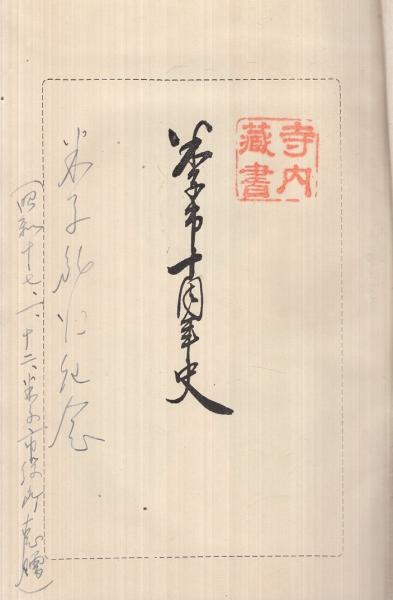 寺内
蔵書
米子市十周年史
米子新旧紀念
(昭和十七、六、十二、米子市役所恵贈)